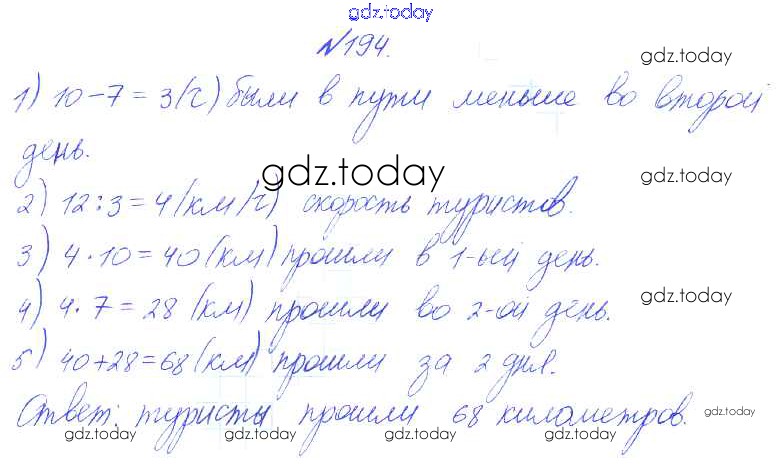 gdz.today
№194.
gdz.today
1) 10-7=3(ч) были в пути меньше во второй
день.
gdz.today
gdz.today
2) 12:3=4(км/ч) скорость туристов.
3) 4·10=40(км) прошли в 1-ый день.
gdz.today
4) 4·7=28(км) прошли во 2-ой день.
5) 40+28=68(км) прошли за 2 дня.
Ответ: туристы прошли 68 километров.
gdz.today
gdz.today gdz.today gdz.today gdz.today gdz.today